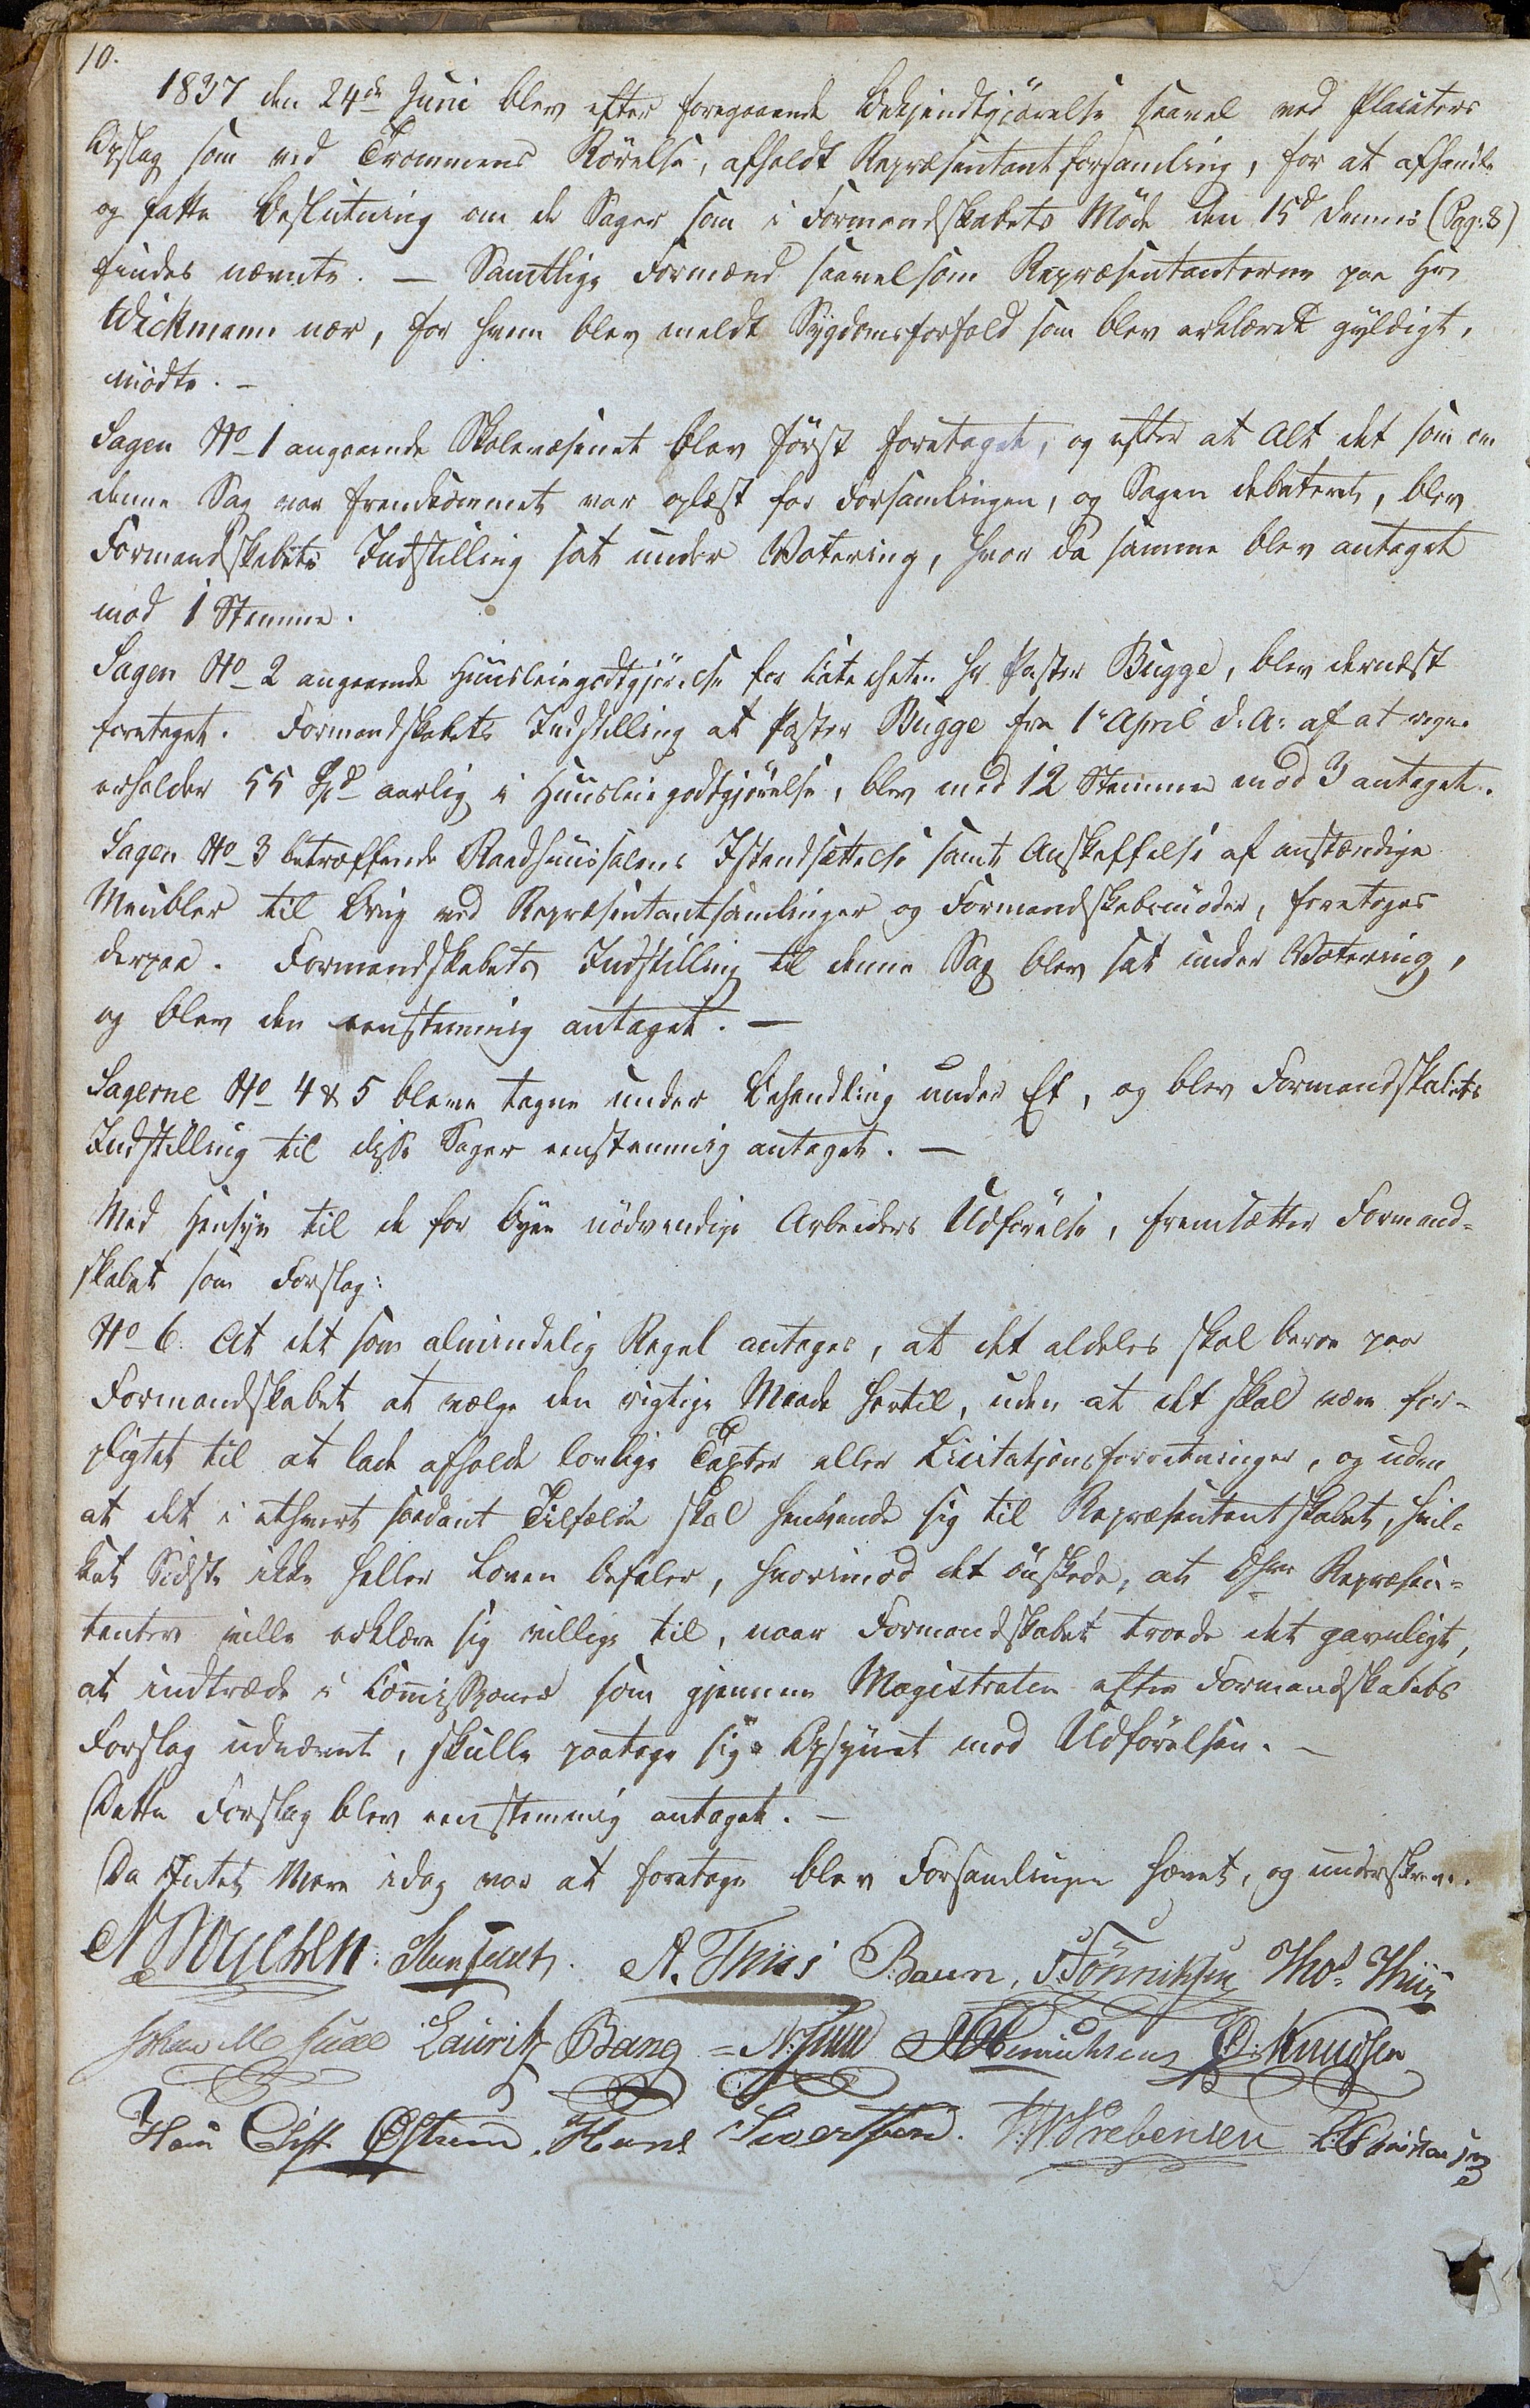 10.
1837 den 24de Juni blev efter foregaaende Bekjendtgjörelse saavel ved Placaters
Opslag som ved Trommens Rörelse, afholdt Repræsentantforsamling, for at afhandle
og fatte Beslutning om de Sager som i Formandskabets Möde den 15d dennes (Pag: 8)
findes nævnte. — Samtlige Formænd saavelsom Repræsentanterne paa Hr
Wickmann nær, for hvem blev meldt Sygdomsforfald som blev erklæret gyldigt,
mödte. —
Sagen No 1 angaaende Skolevæsenet blev först foretaget, og efter at Alt det som om
denne Sag var fremkommet var oplæst for Forsamlingen, og Sagen debateret, blev
Formandskabets Indstilling sat under Votering, hvor da samme blev antaget
mod 1 Stemme.
Sagen No 2 angaaende Huusleiegodtgjörelse for Catecheten Hr Pastor Bugge, blev dernæst
foretaget. Formandskabets Indstilling at Pastor Bugge fra 1e April d: A: af at regne
erholder 55 Spd aarlig i Huusleiegodtgjörelse, blev med 12 Stemmer mod 3 antaget.
Sagen No 3 betræffende Raadhuussalens Istandsættelse samt Anskaffelse af anstændige
Meubler til Brug ved Repræsentantsamlinger og Formandskabsmöder, foretoges
derpaa. Formandskabets Indstilling til denne Sag blev sat under Votering,
og blev den eenstemmig antaget. —
Sagerne No 4 & 5 bleve tagne under Behandling under Et, og blev Formandskabets
Indstilling til disse Sager eenstemmig antaget. —
Med Hensyn til de for Byen nödvendige Arbeiders Udförelse, fremsætter Formand-
skabet som Forslag:
No 6. At det som almindelig Regel antages, at det aldeles skal beroe paa
Formandskabet at vælge den rigtige Maade hertil, uden at det skal være for-
pligtet til at lade afholde lovlige Taxter eller Licitationsforretninger, og uden
at det i ethvert saadant Tilfælde skal henvende sig til Repræsentantskabet, hvil-
ket Sidste ikke heller Loven befaler, hvorimod det önskede, at DHrr Repræsen-
tanter ville erklære sig villige til, naar Formandskabet troede det gavnligt,
at indtræde i Commissioner som gjennem Magistraten efter Formandskabets
Forslag udnævnte, skulle paatage sig Opsynet med Udförelsen. —
Dette Forslag blev eenstemmig antaget. —
Da Intet Mere idag var at foretage blev Forsamlingen hævet, og underskreven.
A. Thiis P. Baun, J Tönniksen Thos Thiis
Johan M Juell Lauritz Bang = N: Juul Hinrichsen O. Knudsen
Hans Chr Östrem. Hans Sivertsen. Prebensen